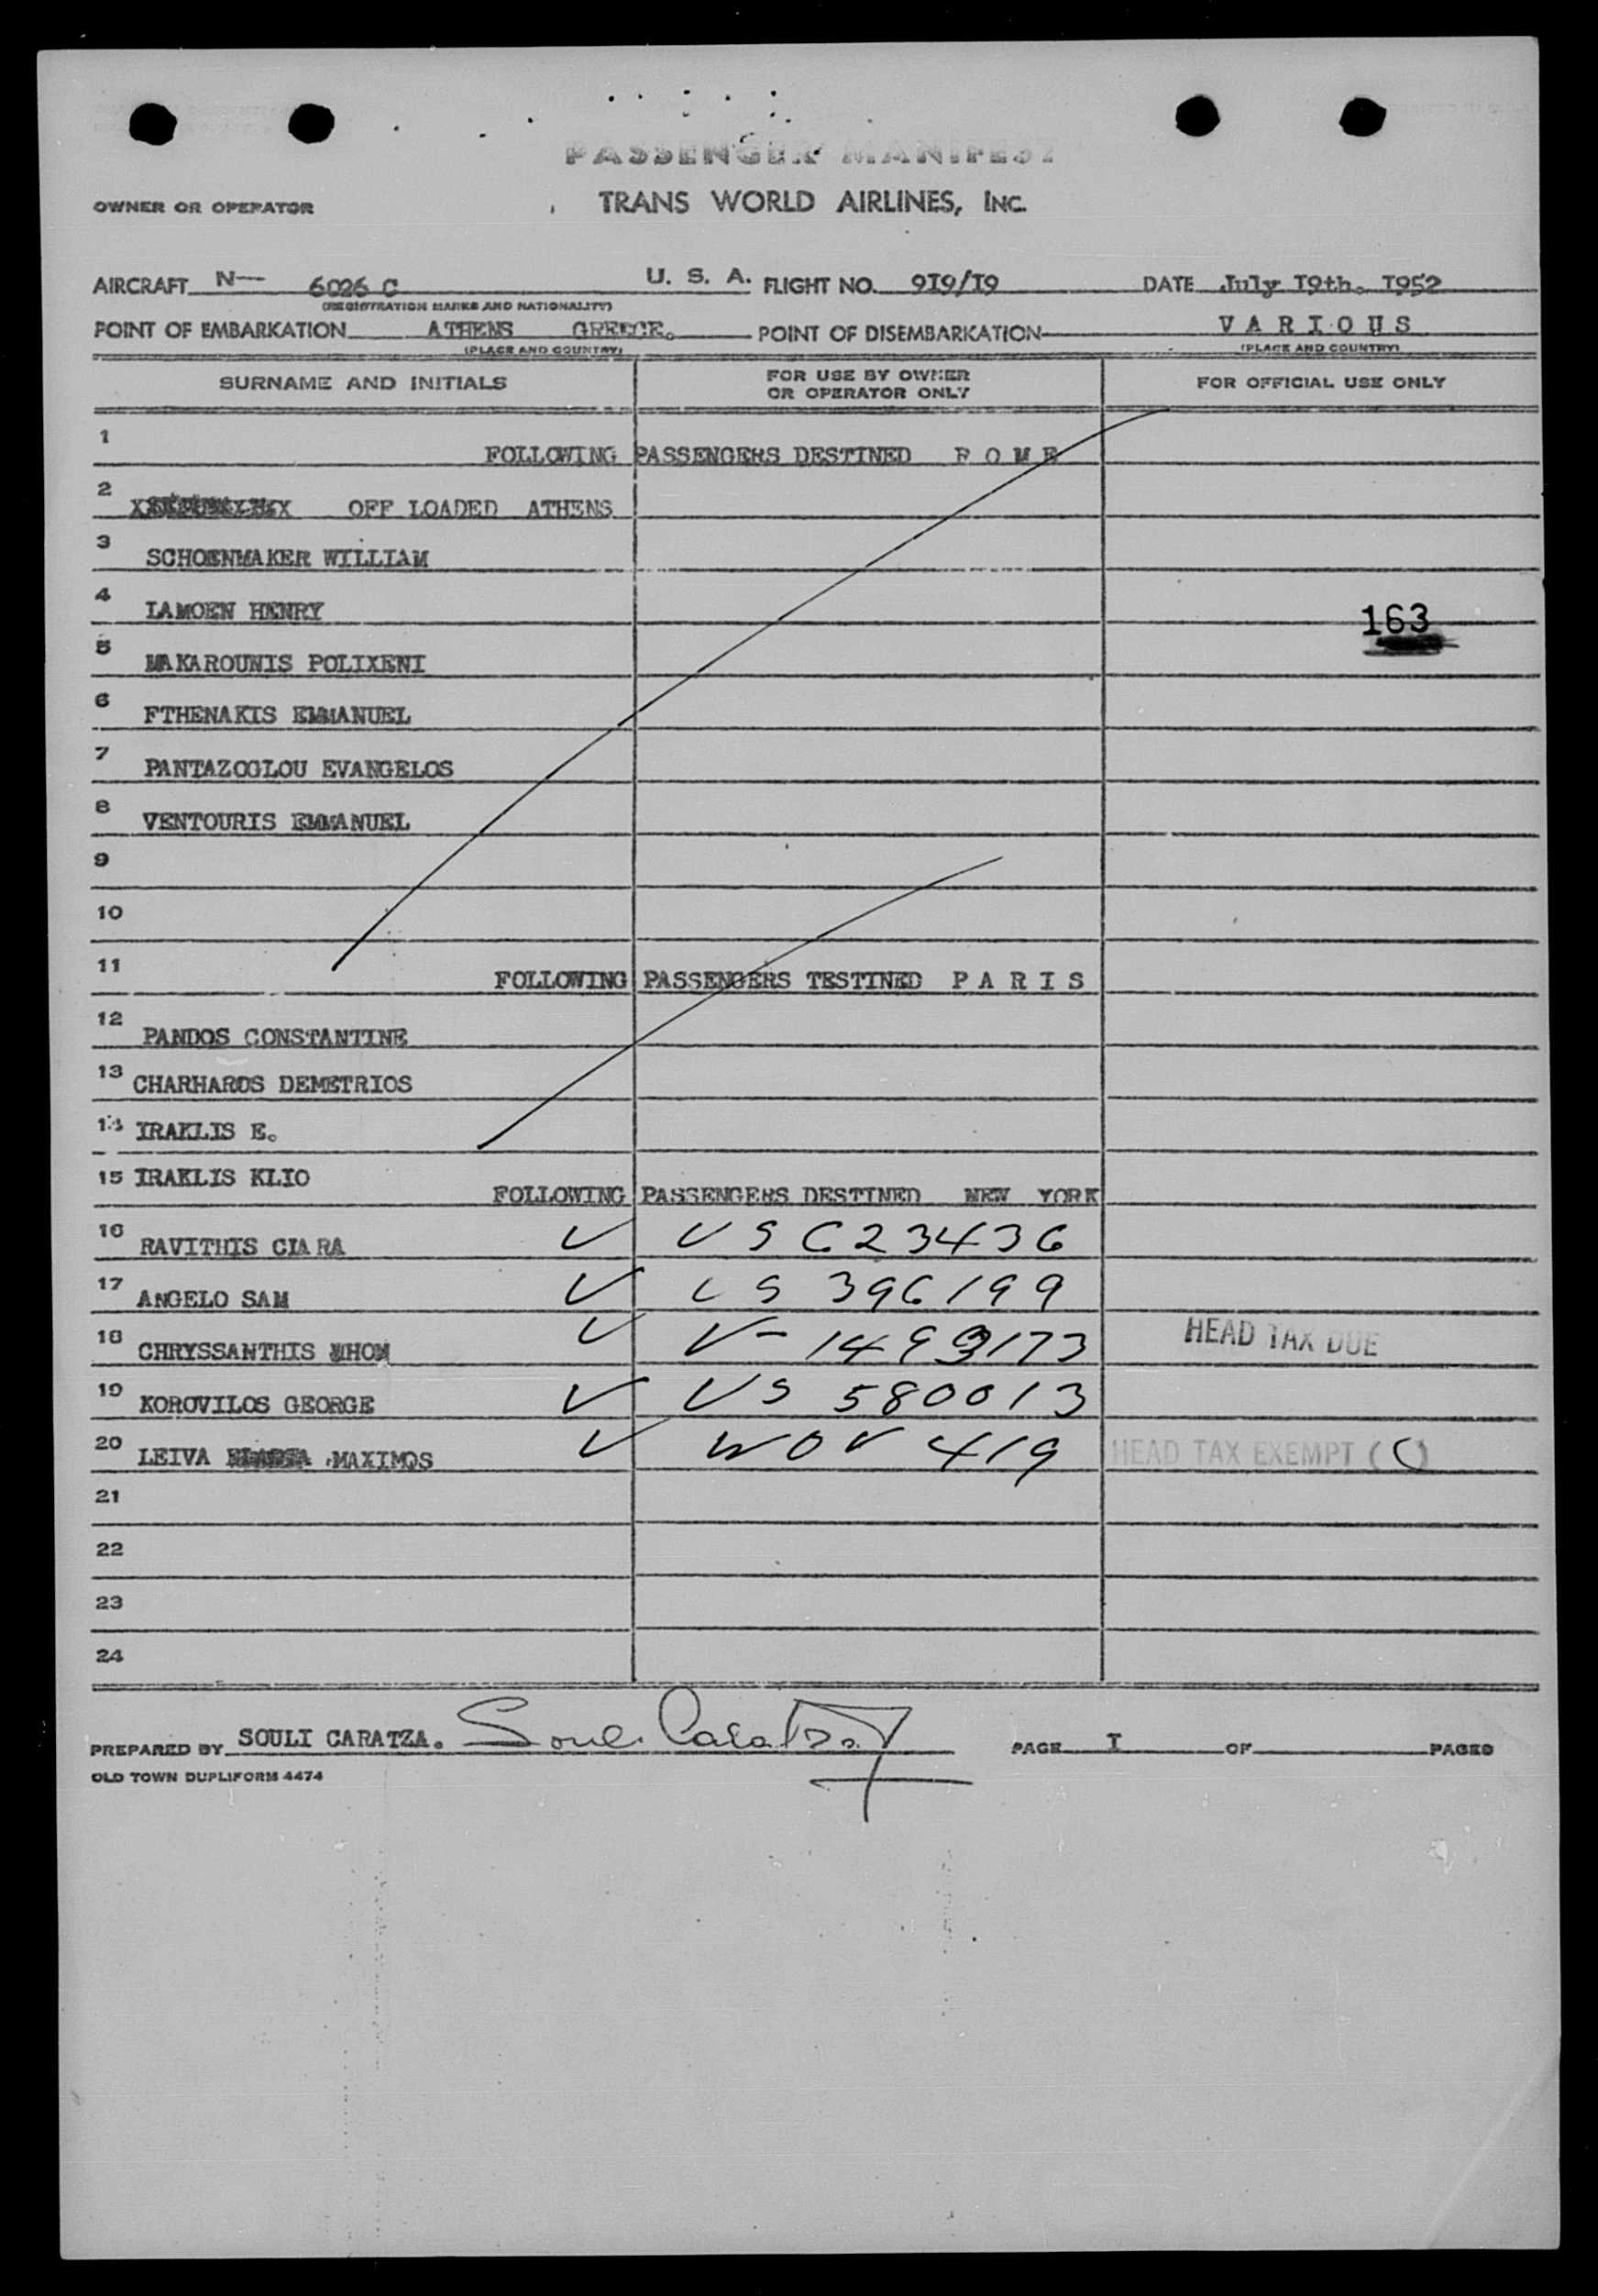 PASSENGER MANIFEST
OWNER OR OPERATOR TRANS WORLD AIRLINES, INC.
AIRCRAFT N— 6026 C U. S. A. FLIGHT NO. 9I9/I9 DATE July I9th. I952
(REGISTRATION MARKS AND NATIONALITY)
POINT OF EMBARKATION ATHENS GREECE. POINT OF DISEMBARKATION VARIOUS
(PLACE AND COUNTRY) (PLACE AND COUNTRY)
SURNAME AND INITIALS FOR USE BY OWNER OR OPERATOR ONLY FOR OFFICIAL USE ONLY
1 FOLLOWING PASSENGERS DESTINED R O M E
2 OFF LOADED ATHENS
3 SCHOENMAKER WILLIAM
4 LAMOEN HENRY 163
5 MAKAROUNIS POLIXENI
6 FTHENAKIS EMMANUEL
7 PANTAZOGLOU EVANGELOS
8 VENTOURIS EMMANUEL
9
10
11 FOLLOWING PASSENGERS TESTINED P A R I S
12 PANDOS CONSTANTINE
13 CHARHAROS DEMETRIOS
14 IRAKLIS E.
15 IRAKLIS KLIO
FOLLOWING PASSENGERS DESTINED NEW YORK
16 RAVITHIS CIARA ✓ US 623436
17 ANGELO SAM ✓ US 396199
18 CHRYSSANTHIS ✓ V-1499173 HEAD TAX DUE
19 KOROVILOS GEORGE ✓ US 580013
20 LEIVA MAXIMOS ✓ WOV 419 HEAD TAX EXEMPT (C)
21
22
23
24
PREPARED BY SOULI CARATZA. Souli Caratza PAGE I OF PAGES
OLD TOWN DUPLIFORM 4474